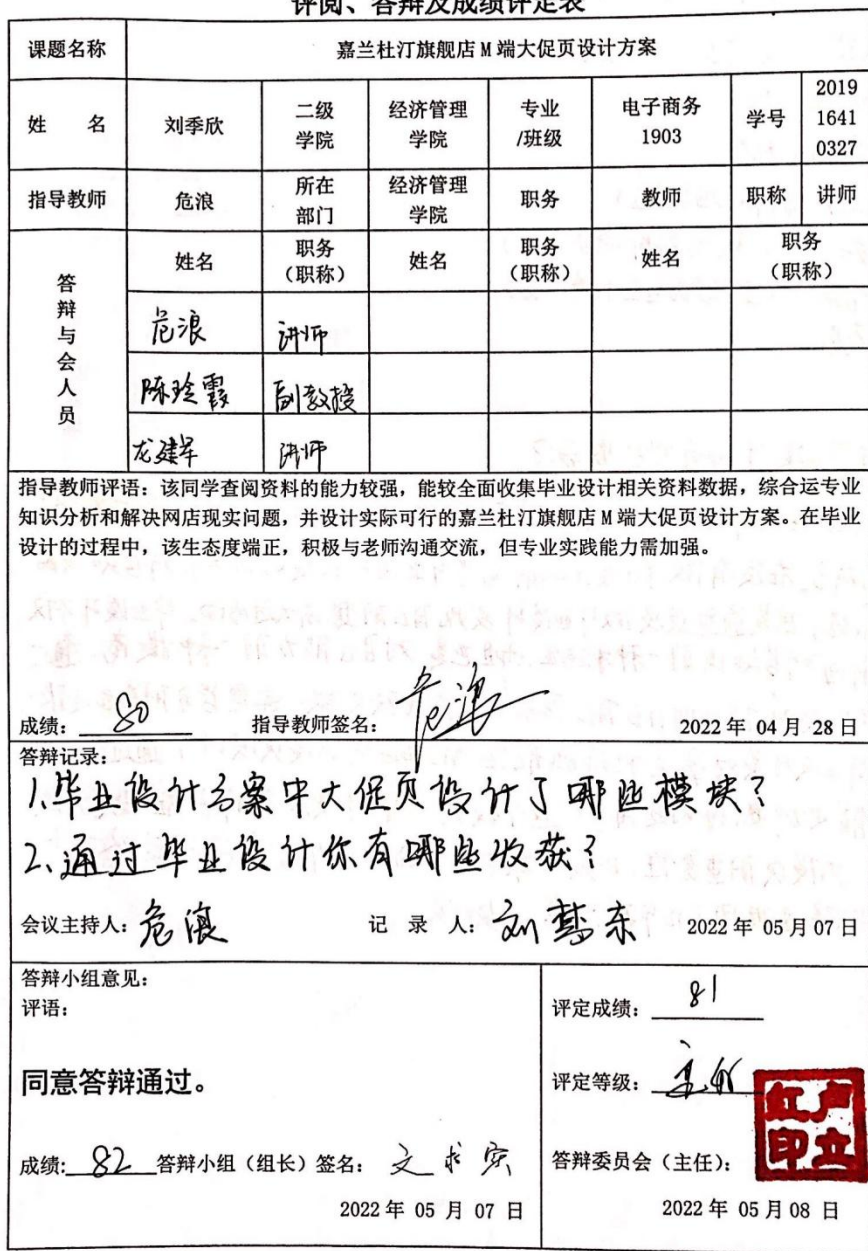 评阅、答辩及成绩评定表
课题名称 嘉兰杜汀旗舰店 M 端大促页设计方案
姓 名 刘季欣 二级学院 经济管理学院 专业/班级 电子商务1903 学号 2019 1641 0327
指导教师 危浪 所在部门 经济管理学院 职务 教师 职称 讲师
答辩与会人员 姓名 职务（职称） 姓名 职务（职称） 姓名 职务（职称）
危浪 讲师
陈玲霞 副教授
龙建军 讲师
指导教师评语：该同学查阅资料的能力较强，能较全面收集毕业设计相关资料数据，综合运专业
知识分析和解决网店现实问题，并设计实际可行的嘉兰杜汀旗舰店 M 端大促页设计方案。在毕业
设计的过程中，该生态度端正，积极与老师沟通交流，但专业实践能力需加强。
成绩： 80 指导教师签名： 危浪 2022 年 04 月 28 日
答辩记录：
1.毕业设计方案中大促页设计了哪些模块？
2.通过毕业设计你有哪些收获？
会议主持人：危浪 记 录 人： 2022 年 05 月 07 日
答辩小组意见：
评语：
同意答辩通过。
成绩: 82 答辩小组（组长）签名： 文求实
2022 年 05 月 07 日
评定成绩： 81
评定等级：
答辩委员会（主任）： 卢立红印
2022 年 05 月 08 日